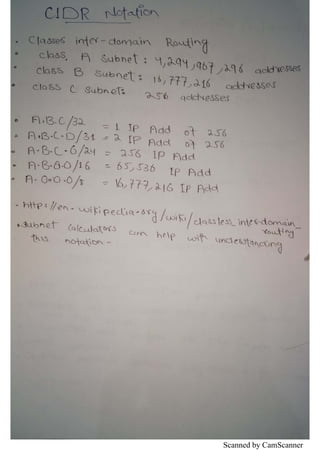 CIDR Notation
• Classes inter-domain Routing
• class A Subnet : 4,294,967,296 addresses
• class B Subnet : 16,777,216 addresses
• class C Subnets 256 addresses
• A.B.C/32 = 1 IP Add of 256
• A.B.C.D/31 = 2 IP Add of 256
• A.B.C.0/24 = 256 IP Add
• A.B.0.0/16 = 65,536 IP Add
• A.0.0.0/8 = 16,777,216 IP Add
• http://en.wikipedia.org/wiki/classless_inter-domain_routing
• subnet Calculators can help with understanding
this notation -
Scanned by CamScanner